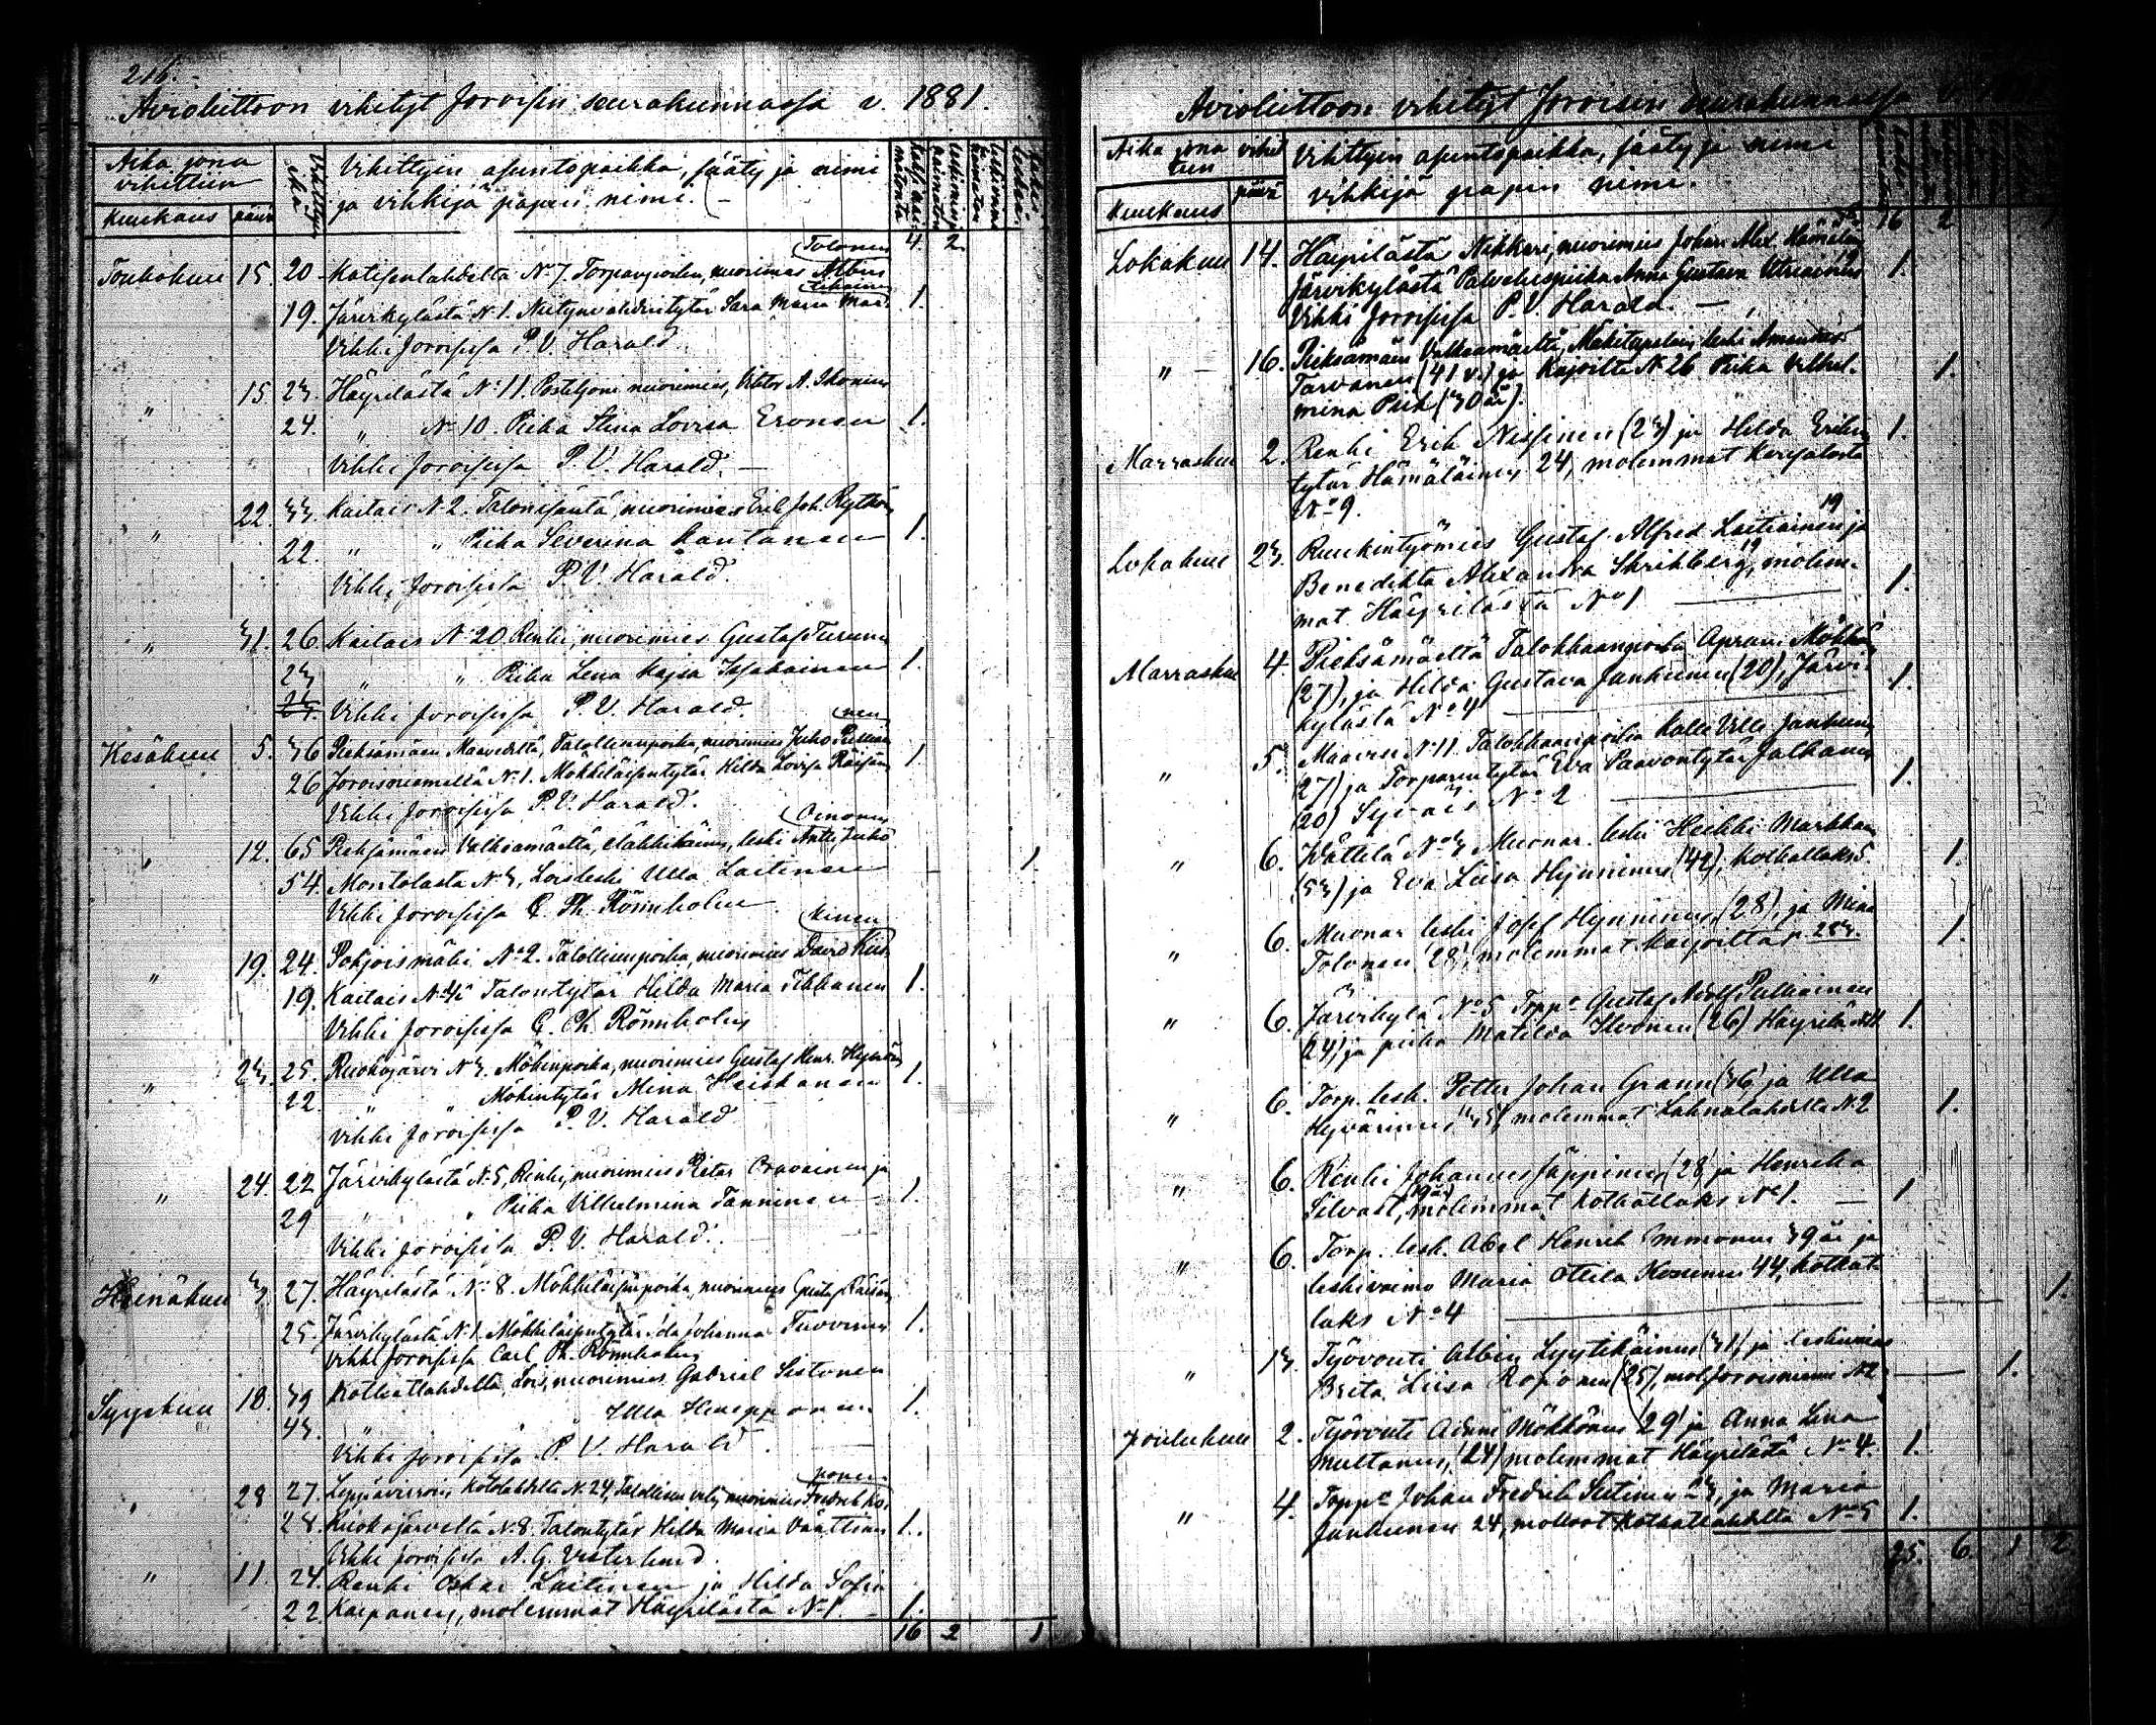 216.
Avioliittoon vihityt Joroisin seurakunnassa v. 1881.
Aika jona vihittiin
Vihittyin ikä
Vihittyin asuntopaikka, sääty ja nimi
ja vihkijä papin nimi. –
kuukaus päivä
4. 2.
Tolonen
Toukokuu 15. 20 Katisenlahdelta N:o 7. Torpanpoika, nuorimies Albin
19. Järvikylästä N:o 1. Niitynvahdintytär Sara Maria 1.
Vihki Joroisissa P. V. Harald.
" 15. 23. Häyrilästä N:o 11. Postiljoni nuorimies, Viktor A. Ikonen
24. " N:o 10. Piika Stina Lovisa Eronen 1.
Vihki Joroisissa P. V. Harald. –
" 22. 33. Kaitais N:o 2. Talonisäntä, nuorimies Erik Joh. Rytkön
22. " " Piika Severina Rautanen 1.
Vihki Joroisissa P. V. Harald.
" 31. 26. Kaitais N:o 20. Renki, nuorimies Gustaf Turunen
23 " " Piika Lena Kajsa 1.
Vihki Joroisissa P. V. Harald.
nen
Kesäkuu 5. 36 Pieksämäen Maavedeltä, Talollisenpoika, nuorimies Juho
26 Joroisniemeltä N:o 1. Mökkiläisentytär Hilda Lovisa Räisän 1
Vihki Joroisissa P. V. Harald.
Oinonen
" 12. 65 Pieksämäen Valkiamäeltä, eläkkiläinen, leski Antti Juho
54. Montolasta N:o 3, Loisleski Ulla Laitinen 1.
Vihki Joroisissa C. Ph. Rönnholm
kinen
" 19. 24. Pohjoismäki N:o 2. Talollisenpoika, nuorimies David
19. Kaitais N:o 4 Talontytär Hilda Maria Tikkanen 1.
Vihki Joroisissa C. Ph. Rönnholm
" 23. 25. Ruokojärvi N:o 3. Mökinpoika, nuorimies Gustaf Henr. Hynnin
22 " " Mökintytär Mina Heiskanen 1.
Vihki Joroisissa P. V. Harald
" 24. 22 Järvikylästä N:o 5, Renki, nuorimies Petar Oravainen ja
29 " " Piika Vilhelmina Tanninen 1.
Vihki Joroisissa P. V. Harald.
Heinäkuu 3 27. Häyrilästä N:o 8. Mökkiläisenpoika, nuorimies Gustaf Räisän
25. Järvikylästä N:o 1. Mökkiläisentytär Ida Johanna Tuovinen 1.
Vihki Joroisissa Carl Ph. Rönnholm
Syyskuu 18. 39 Kotkatlahdelta, Lois, nuorimies Gabriel Sistonen
43. " Ulla 1.
Vihki Joroisissa P. V. Harald. –
ponen
" 28 27. Leppävirroin Kotolahdelta N:o 24, Talollisen velj, nuorimies Fredrik
28. Ruokojärveltä N:o 8. Talontytär Hilda Maria Väättinen 1.
Vihki Joroisissa A. G. Vesterlund.
" 11. 24. Renki Oskar Laitinen ja Hilda Sofia
22 Karpanen, molemmat Häyrilästä N:o 1. 1.
16 2 1
Avioliittoon vihityt Joroisin seurakunnassa
Aika jona vihittiin
Vihittyin asuntopaikka, sääty ja nimi
vihkijä papin nimi.
Kuukaus päivä
16 2 1
Lokakuu 14. Häyrilästä Nikkari, nuorimies Johan Alex. Hämäläin
Järvikylästä Palveluspiika Anna Gustava Utriainen 19 1.
Vihki Joroisissa P. V. Harald. –
" 16. Pieksämäen Valkiamäeltä, Mäkitupalais leski
Tarvanen (41 v.) ja Kajoilta N:o 26 Piika Vilhel- 1.
mina (30 är).
Marraskuu 2. Renki Erik Nissinen (23) ja Hilda Erikin 1.
tytär Hämäläinen 24, molemmat Kerisalosta
N:o 9.
Lokakuu 23. Ruukintyömies Gustaf Alfred Laitiainen 19 ja
Benedikta Alexandra Skrikberg 19, molem-
mat Häyrilästä N:o 1 1.
Marraskuu 4. Pieksämäeltä Talokkaanpoika Apram Mökkön
(27), ja Hilda Gustava Janhunen (20), Järvi- 1.
kylästä N:o 4
" 5. Maavesi N:o 11. Talokkaanpoika Kalle Ville Janhunen
(27) ja Torparintytär Eva Paavontytär Jalkanen
(20) Syväis N:o 2 1.
" 6. Wättilä N:o 3 Muonar. leski Heikki Markkan
(53) ja Eva Liisa Hynninen (42), Kotkatlaks 5. 1.
" 6. Muonar leski Josef Hynninen (28), ja Mina
Tolonen 28, molemmat Kajoilta 1.
" 6. Järvikylä N:o 5 Torpp. Gustaf Adolf Pulliainen
24, ja piika Matilda Ilvonen (26) Häyrilä N:o 11 1.
" 6. Torp. lesk. Petter Johan Grann (36) ja Ulla
Hyvärinen, molemmat Lahnalahdelta N:o 2 1.
" 6. Renki Johannes Jäppinen, 28 ja Henrika
Silvast, (19 är) molemmat Kotkatlaks N:o 1. – 1
" 6. Torp. lesk. Abel Henrik Immonen 39 är ja
leskivaimo Maria Ottila Kosonen 44, Kotkat-
laks N:o 4 1.
" 13. Työvouti Albin Lyytikäinen (31) ja leskivaimo
Brita Liisa Roponen (25), mol. Joroisniemi N:o 2 1.
Joulukuu 2. Työvouti Adam Mökkönen 29 ja Anna Lena
Multanen, (24) molemmat Häyrilästä N:o 4. 1.
" 4. Torpp. Johan Fredrik Sutinen 23, ja Maria
Janhunen 24, molemat Kotkatlahdelta N:o 5 1.
25. 6. 1 2.